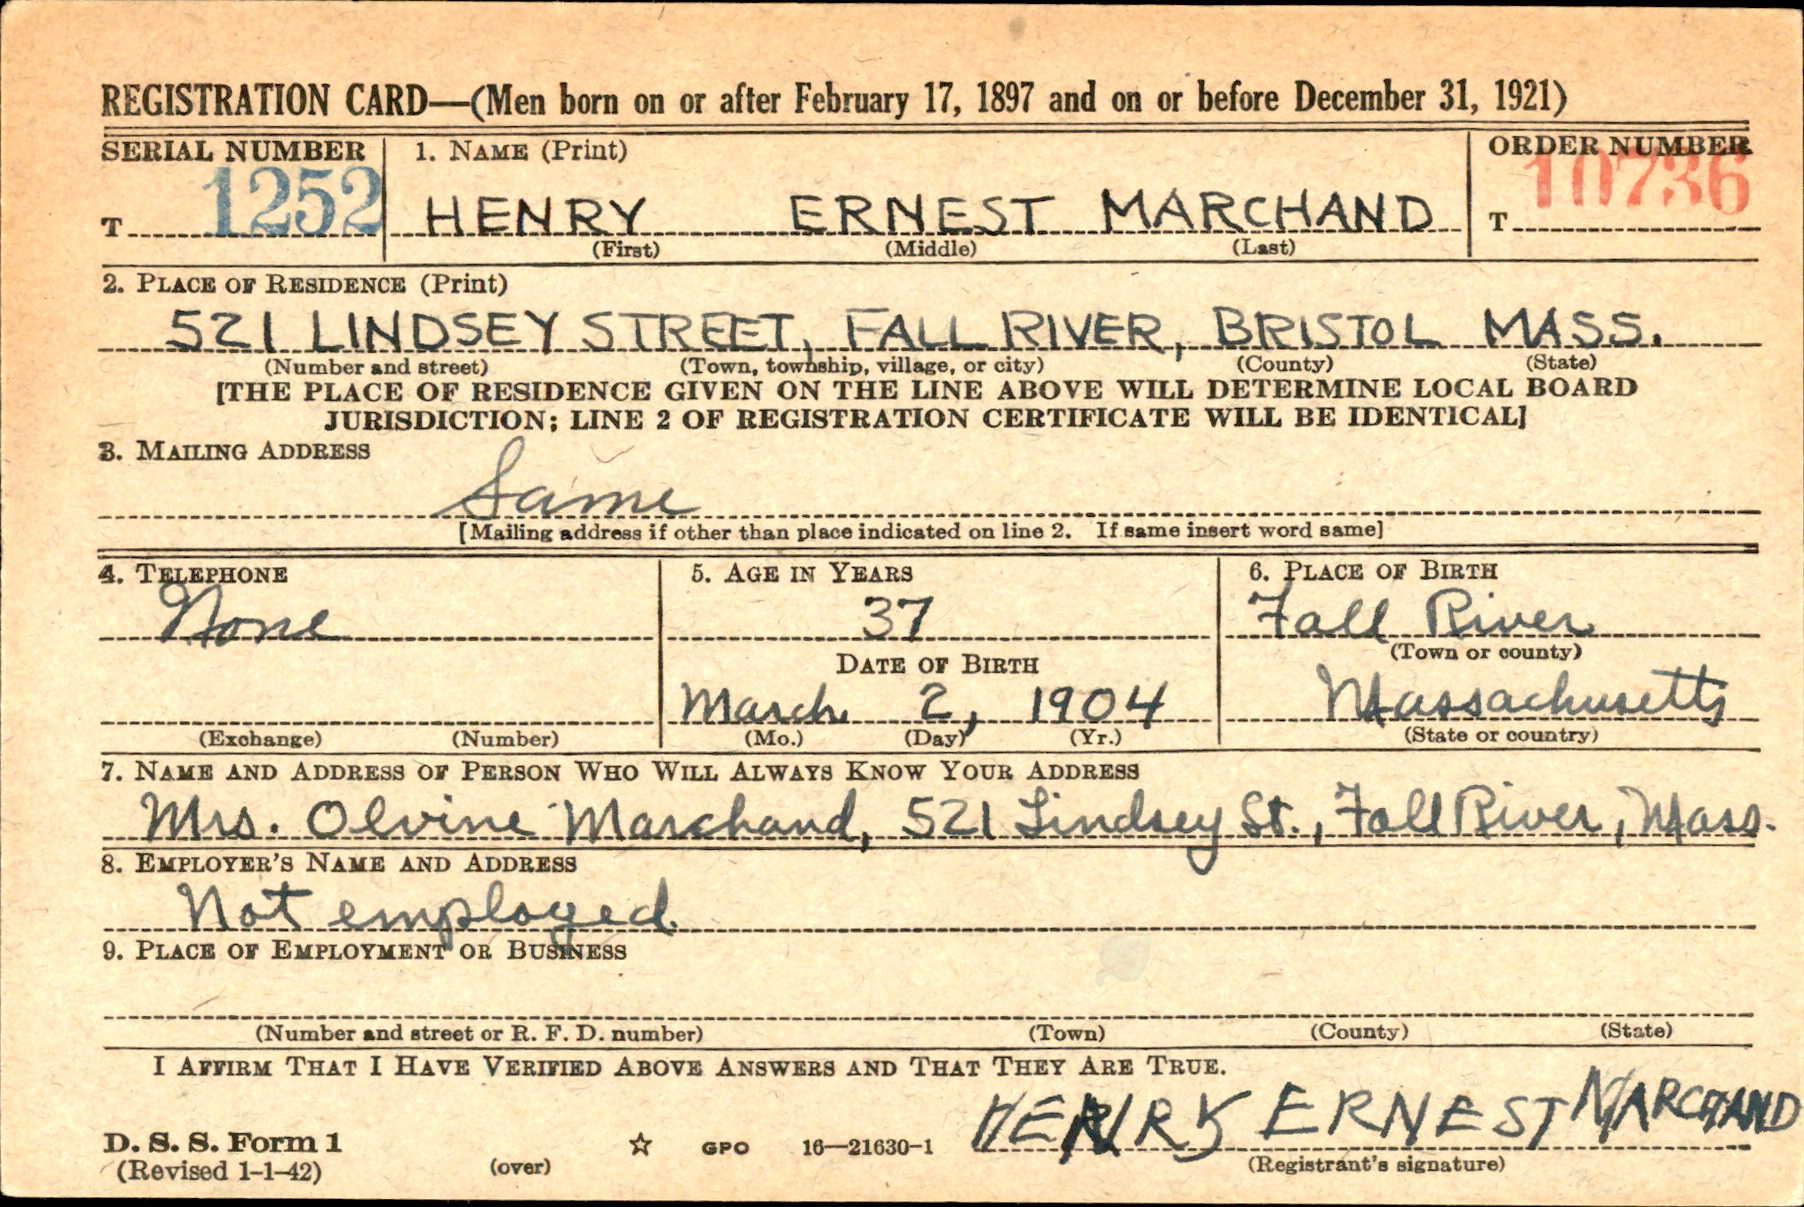 REGISTRATION CARD—(Men born on or after February 17, 1897 and on or before December 31, 1921)
SERIAL NUMBER 1. NAME (Print) ORDER NUMBER
T 1252 HENRY ERNEST MARCHAND T 10736
(First) (Middle) (Last)
2. PLACE OF RESIDENCE (Print)
521 LINDSEY STREET, FALL RIVER, BRISTOL MASS.
(Number and street) (Town, township, village, or city) (County) (State)
[THE PLACE OF RESIDENCE GIVEN ON THE LINE ABOVE WILL DETERMINE LOCAL BOARD
JURISDICTION; LINE 2 OF REGISTRATION CERTIFICATE WILL BE IDENTICAL]
3. MAILING ADDRESS
Same
[Mailing address if other than place indicated on line 2. If same insert word same]
4. TELEPHONE 5. AGE IN YEARS 6. PLACE OF BIRTH
None 37 Fall River
DATE OF BIRTH (Town or county)
March 2, 1904 Massachusetts
(Exchange) (Number) (Mo.) (Day) (Yr.) (State or country)
7. NAME AND ADDRESS OF PERSON WHO WILL ALWAYS KNOW YOUR ADDRESS
Mrs. Olvine Marchand, 521 Lindsey St., Fall River, Mass.
8. EMPLOYER'S NAME AND ADDRESS
Not employed
9. PLACE OF EMPLOYMENT OR BUSINESS
(Number and street or R. F. D. number) (Town) (County) (State)
I AFFIRM THAT I HAVE VERIFIED ABOVE ANSWERS AND THAT THEY ARE TRUE.
HENRY ERNEST MARCHAND
D. S. S. Form 1 GPO 16—21630-1
(Revised 1-1-42) (over) (Registrant's signature)